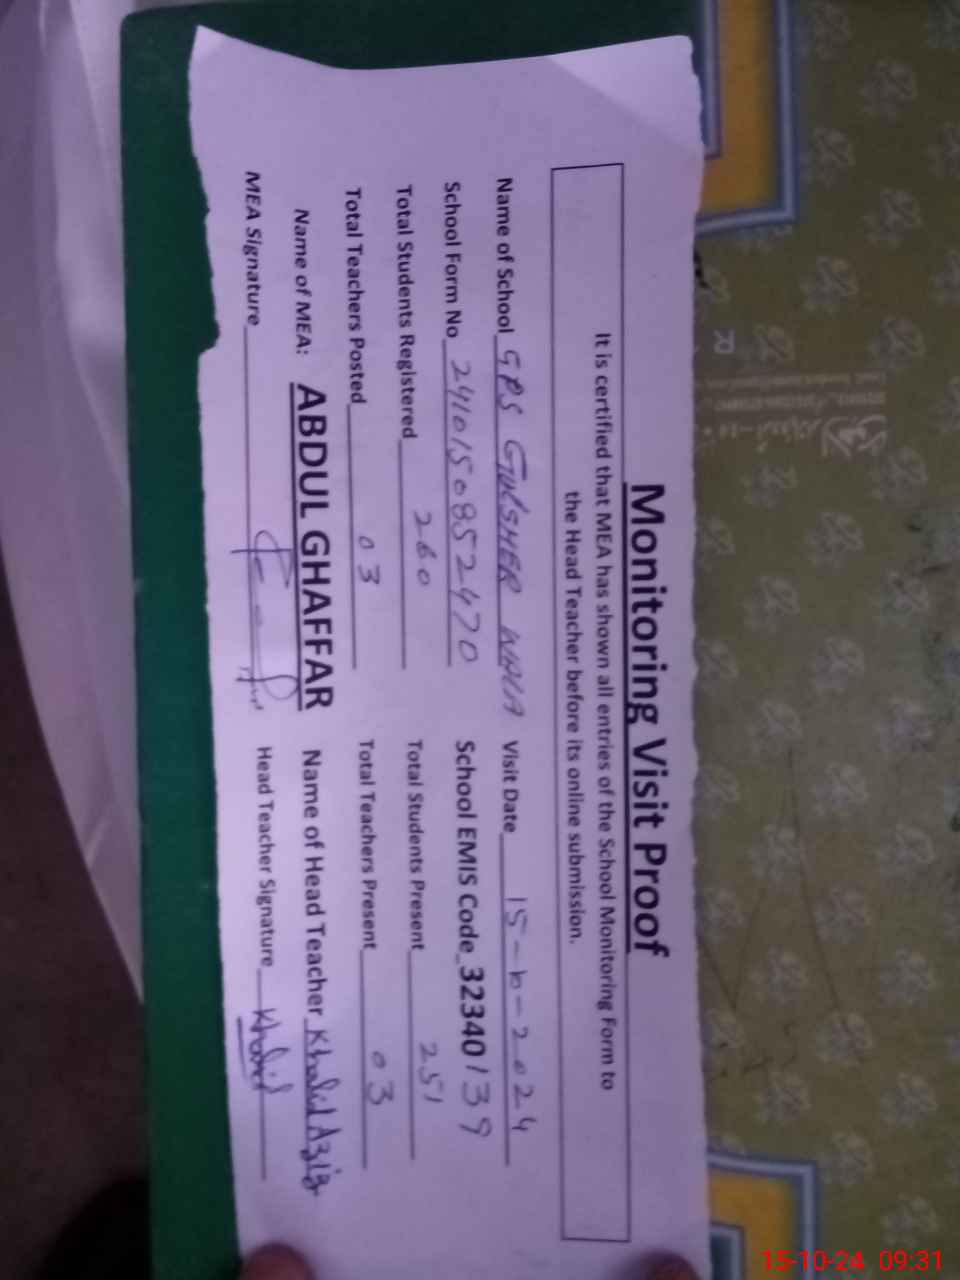 Monitoring Visit Proof
It is certified that MEA has shown all entries of the School Monitoring Form to
the Head Teacher before its online submission.
Name of School GPS GULSHER WALA Visit Date 15-10-2024
School Form No 2410150852470 School EMIS Code 32340139
Total Students Registered 260 Total Students Present 251
Total Teachers Posted 03 Total Teachers Present 03
Name of MEA: ABDUL GHAFFAR Name of Head Teacher Khalid Aziz
MEA Signature Head Teacher Signature Khalid
R
15-10-24 09:31